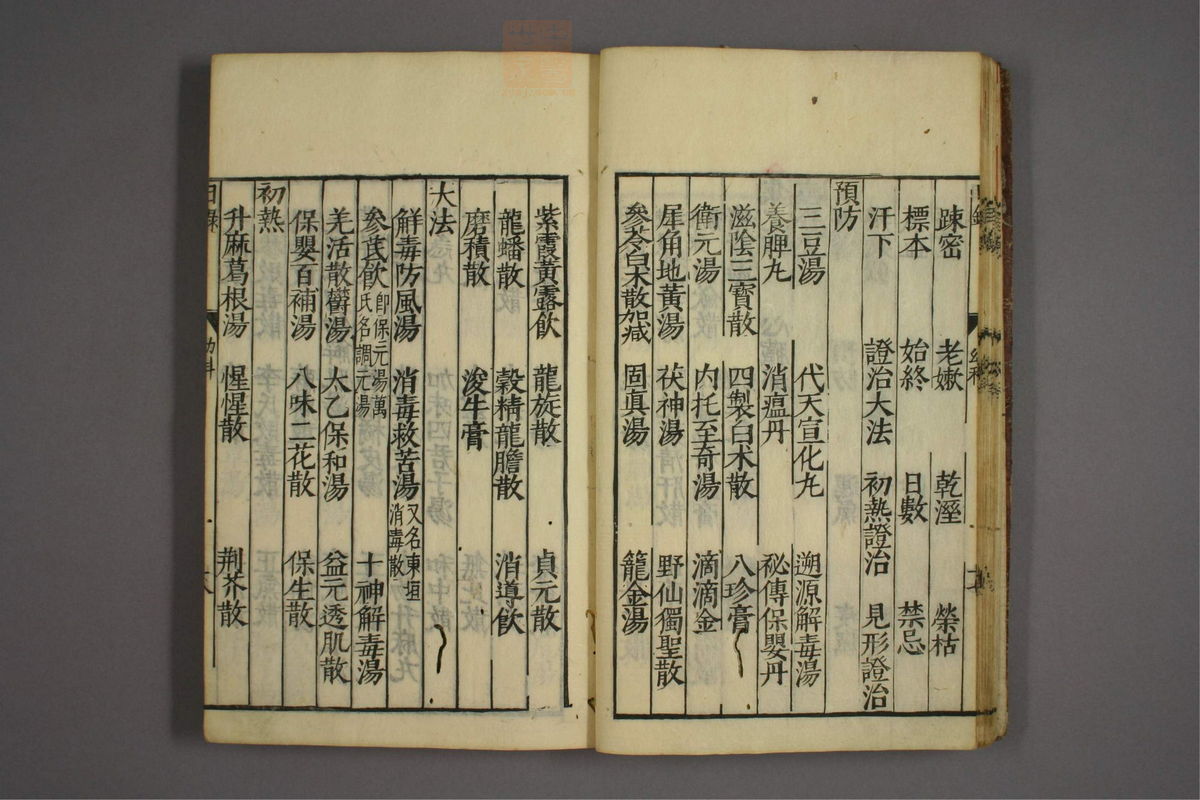 疎密 老嫰 乾溼 榮枯
標本 始終 日數 禁忌
汗下 證治大法 初熱證治 見形證治
預防
三豆湯 代天宣化丸 遡源解毒湯
養脾丸 消瘟丹 秘傳保嬰丹
滋陰三寶散 四製白术散 八珍膏
衛元湯 內托至奇湯 滴滴金
犀角地黃湯 茯神湯 野仙獨聖散
參苓白术散加减 固真湯 籠金湯
紫霞黃露飲 龍旋散 貞元散
龍蟠散 穀精龍膽散 消導飲
磨積散 浚牛膏
大法
解毒防風湯 消毒救苦湯 又名東垣消毒散
參芪飲 卽保元湯萬氏名調元湯 十神解毒湯
羌活散欝湯 太乙保和湯 益元透肌散
保嬰百補湯 八味二花散 保生散
初熱
升麻葛根湯 惺惺散 荆芥散
目錄 幼科